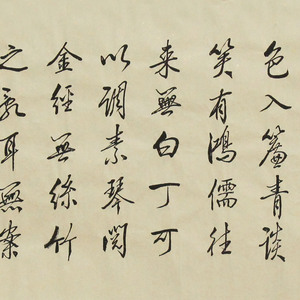 色入簾青談
笑有鴻儒往
来無白丁可
以調素琴閱
金經無絲竹
之亂耳無案